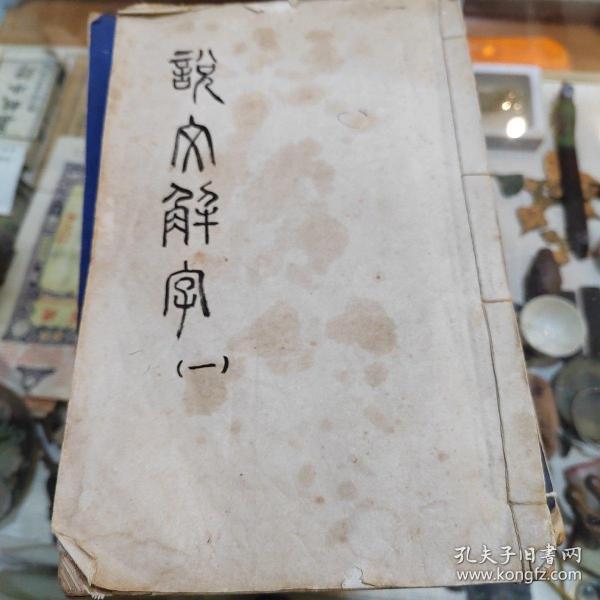 說文解字
(一)
孔夫子旧書网
www.kongfz.com